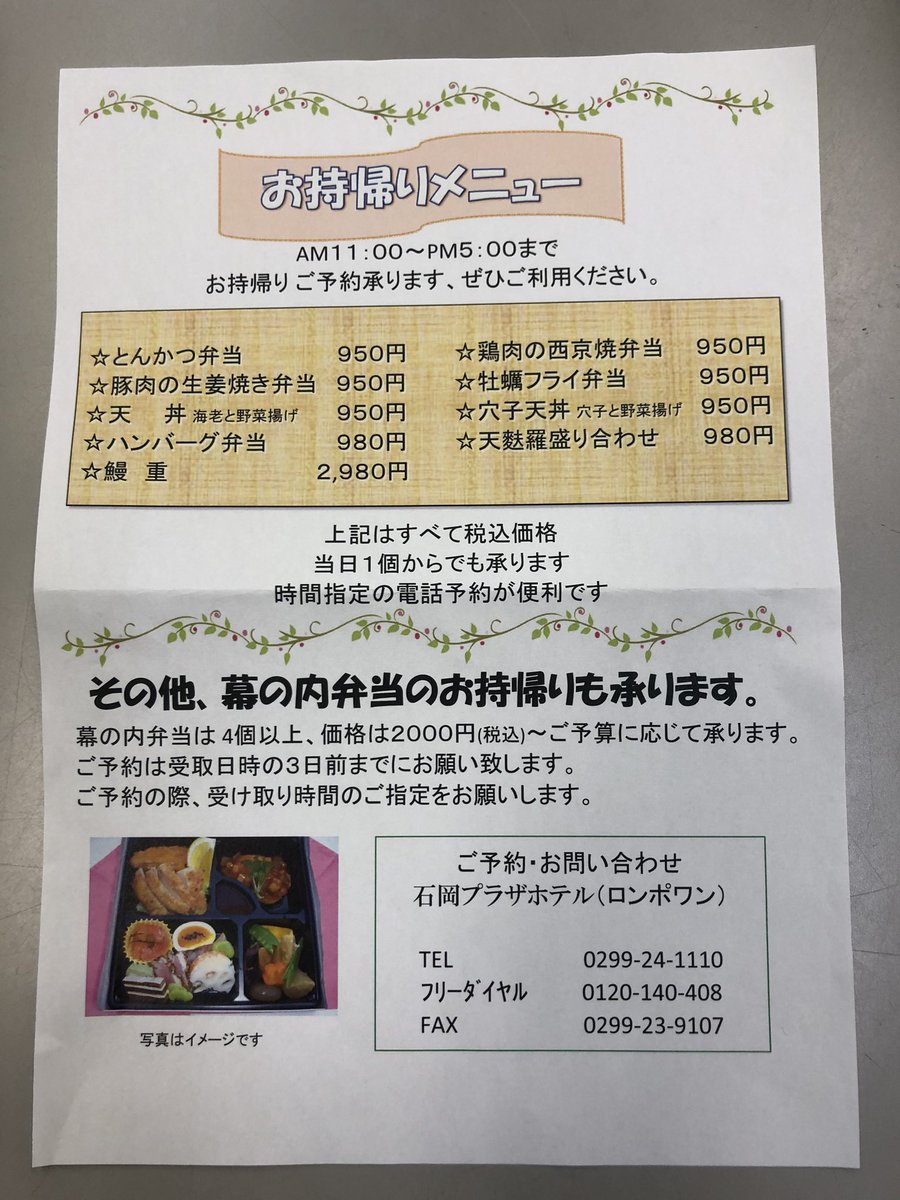 お持帰りメニュー
AM11:00～PM5:00まで
お持帰り ご予約承ります、ぜひご利用ください。
☆とんかつ弁当 950円
☆豚肉の生姜焼き弁当 950円
☆天 丼 海老と野菜揚げ 950円
☆ハンバーグ弁当 980円
☆鰻 重 2,980円
☆鶏肉の西京焼弁当 950円
☆牡蠣フライ弁当 950円
☆穴子天丼 穴子と野菜揚げ 950円
☆天麩羅盛り合わせ 980円
上記はすべて税込価格
当日１個からでも承ります
時間指定の電話予約が便利です
その他、幕の内弁当のお持帰りも承ります。
幕の内弁当は 4個以上、価格は2000円(税込)～ご予算に応じて承ります。
ご予約は受取日時の3日前までにお願い致します。
ご予約の際、受け取り時間のご指定をお願いします。
写真はイメージです
ご予約・お問い合わせ
石岡プラザホテル（ロンポワン）
TEL 0299-24-1110
ﾌﾘｰﾀﾞｲﾔﾙ 0120-140-408
FAX 0299-23-9107